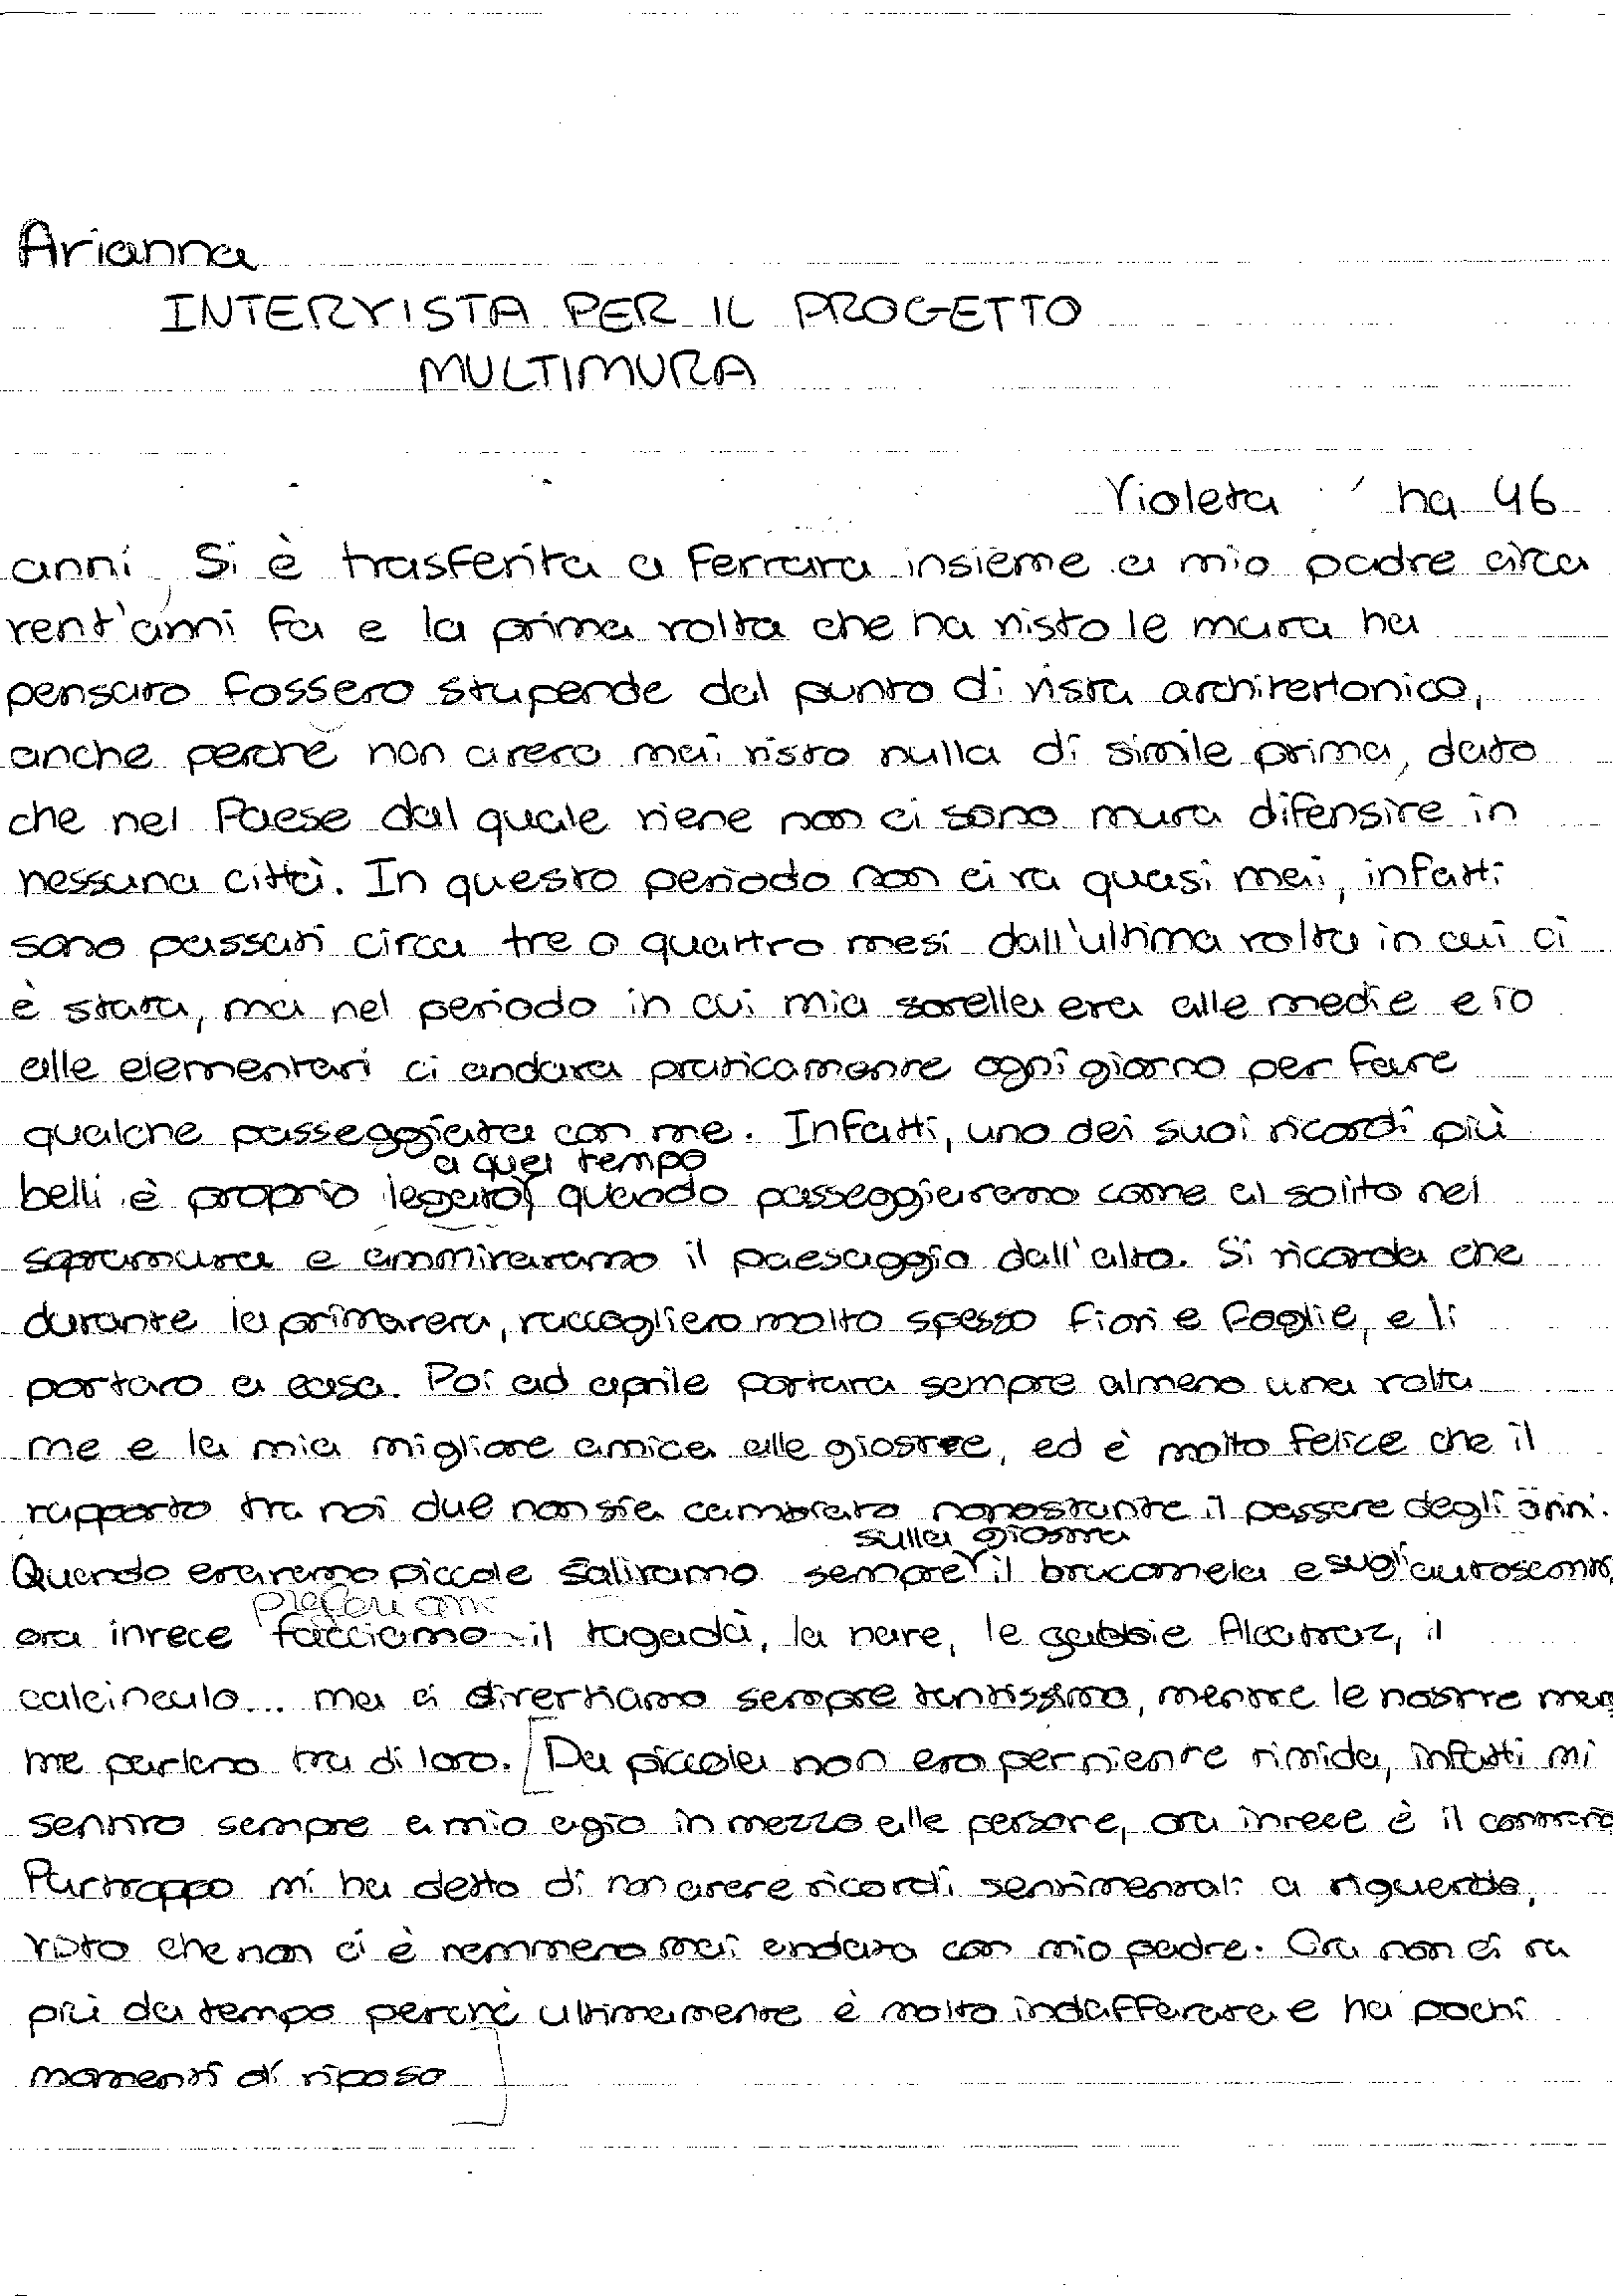 Arianna
INTERVISTA PER IL PROGETTO
MULTIMURA
Violeta ha 46
anni, Si è trasferita a Ferrara insieme a mio padre circa
vent'anni fa e la prima volta che ha visto le mura ha
pensato fossero stupende dal punto di vista architettonico,
anche perchè non aveva mai visto nulla di simile prima, dato
che nel Paese dal quale viene non ci sono mura difensive in
nessuna città. In questo periodo non ci va quasi mai, infatti
sono passati circa tre o quattro mesi dall'ultima volta in cui ci
è stata, ma nel periodo in cui mia sorella era alle medie e io
alle elementari ci andava praticamente ogni giorno per fare
qualche passeggiata con me. Infatti, uno dei suoi ricordi più
a quel tempo
belli è proprio legato, quando passeggiavamo come al solito nel
sopramura e ammiravamo il paesaggio dall'alto. Si ricorda che
durante la primavera, raccoglievo molto spesso fiori e foglie, e li
portavo a casa. Poi ad aprile portava sempre almeno una volta
me e la mia migliore amica alle giostre, ed è molto felice che il
rapporto tra noi due non sia cambiato nonostante il passare degli anni.
sulla giostra
Quando eravamo piccole salivamo sempre il brucomela e sugli autoscontri,
preferiamo
ora invece facciamo il tagadà, la nave, le gabbie Alcatraz, il
calcinculo... ma ci divertiamo sempre tantissimo, mentre le nostre mam
me parlano tra di loro. [Da piccola non ero per niente timida, infatti mi
sentivo sempre a mio agio in mezzo alle persone, ora invece è il contrario
Purtroppo mi ha detto di non avere ricordi sentimentali a riguardo,
visto che non ci è nemmeno mai andata con mio padre. Ora non ci va
più da tempo perchè ultimamente è molto indaffarata e ha pochi
momenti di riposo]